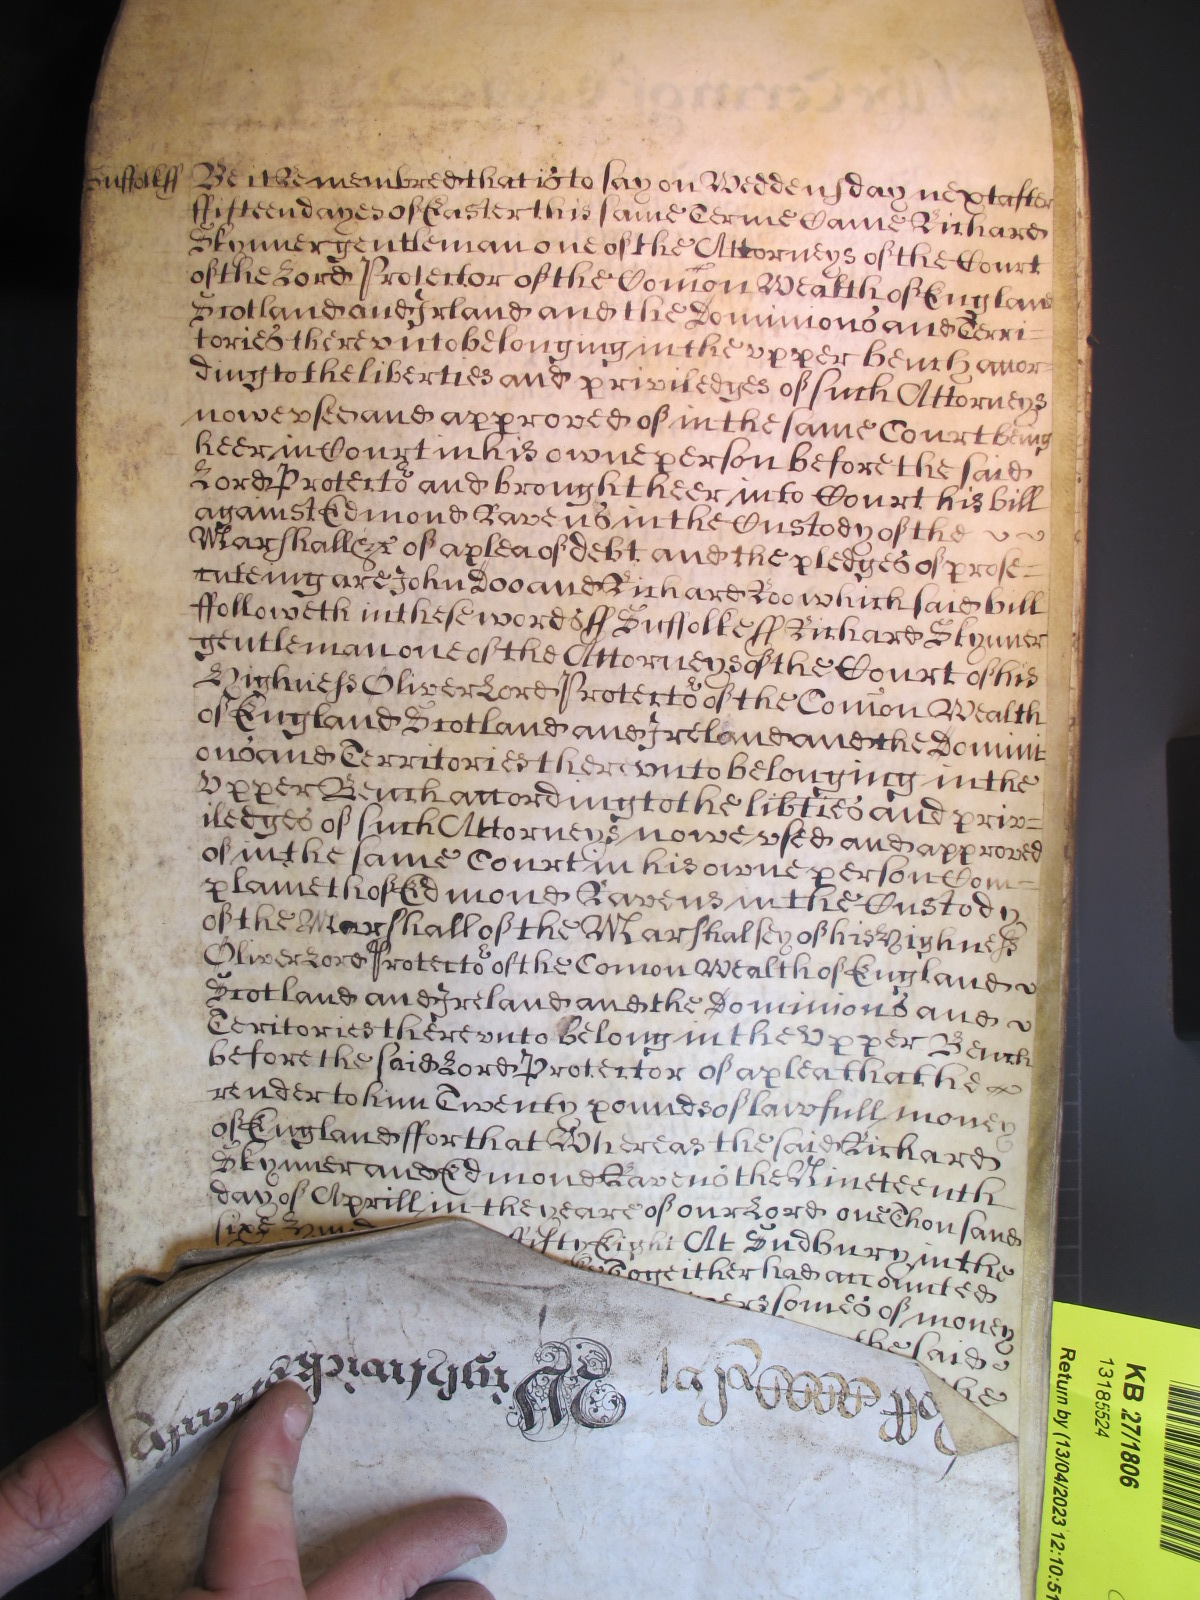 Suffolk ff Be it Remembred that is to say on Weddensday next after
ffifteen dayes of Easter this same Terme Came Richard
Skynner gentleman one of the Attorneys of the Court
of the Lord Protector of the Com̄on Wealth of England
Scotland and Irland and the Dominions and Terri=
tories therevnto belonging in the vpper bench accor=
ding to the liberties and priviledges of such Attorneys
nowe vsed and approved of in the same Court being
heer in Court in his owne person before the said
Lord Protector and brought heer into Court his bill
against Edmond Ravens in the Custody of the
Marshall &c of a plea of debt and the pledges of prose=
cuteing are John Doo and Richard Roo which said bill
ffolloweth in these words ff Suffolke ff Richard Skynner
gentleman one of the Attorneys of the Court of his
Highness Oliver Lord Protector of the Com̄on Wealth
of England Scotland and Ireland and the Domini
ons and Territories therevnto belonging in the
Vpper Bench according to the libties and priv=
iledges of such Attorneys nowe vsed and approved
of in the same Court in his owne person Com=
plaineth of Edmond Ravens in the Custody
of the Marshall of the Marshalsey of his Highness
Oliver Lord Protector of the Comon Wealth of England
Scotland and Ireland and the Dominions and
Teritories therevnto belong in the Vpper Bench
before the said Lord Protector of a plea that he
render to him Twenty pounds of lawfull money
of England ffor that Whereas the said Richard
Skynner and Edmond Ravens the Nineteenth
day of Aprill in the yeare of our Lord one Thousand
sixe Hund ffifty Eight At Sudbury in the
Togeither had accounted
somes of money
the said
the
KB 27/1806
13185524
Return by (13/04/2023 12:10:51